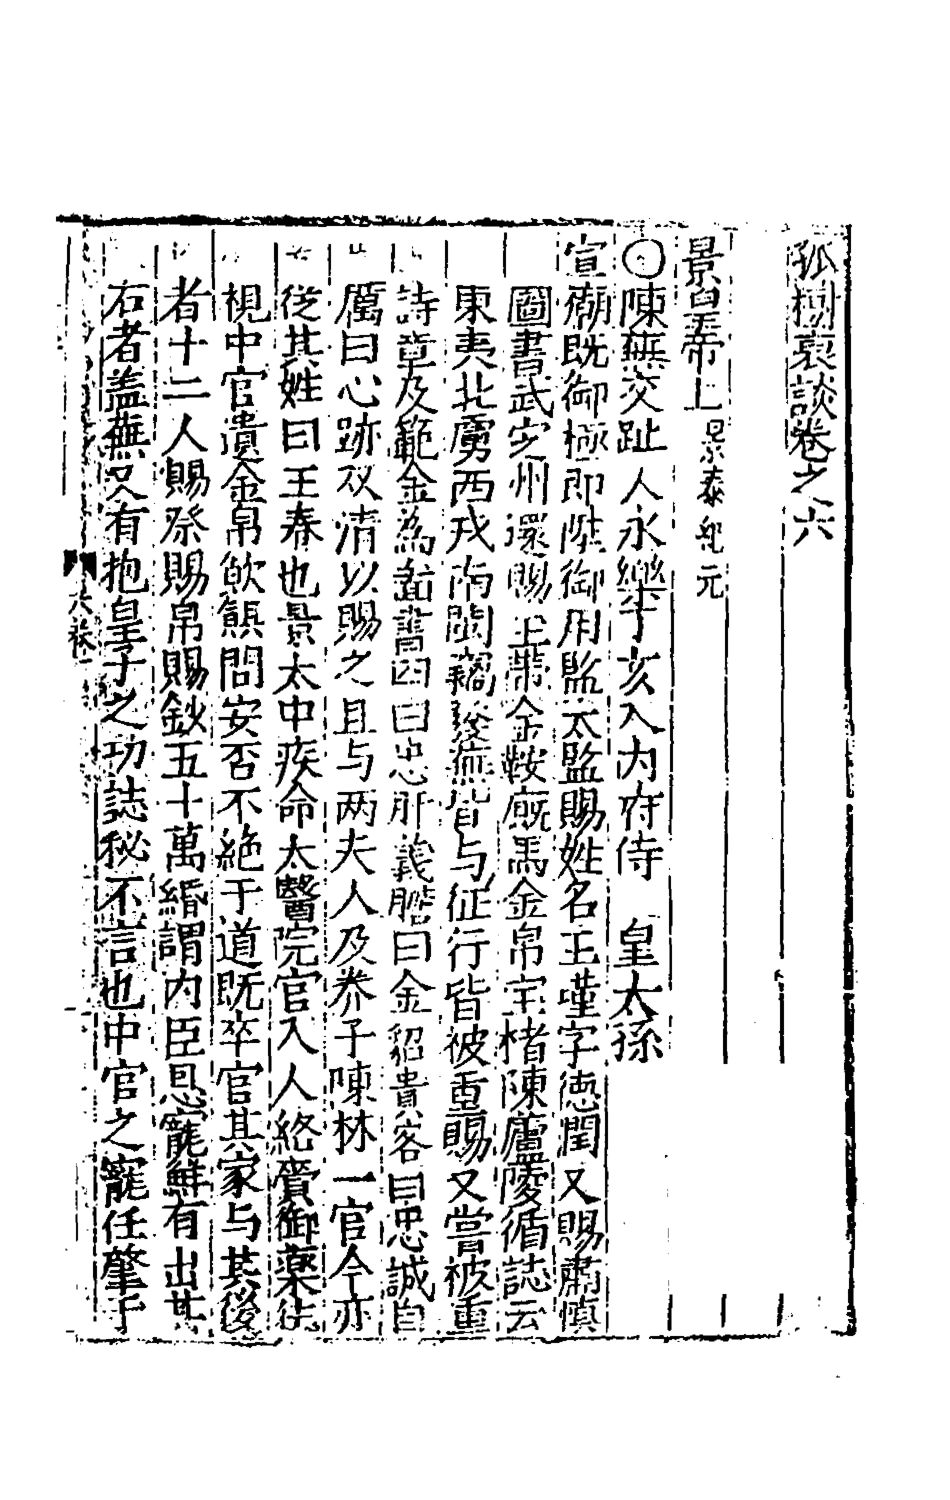 孤樹裒談卷之六
景皇帝上 景泰紀元
〇陳蕪交趾人永樂丁亥入內府侍 皇太孫
宣廟既御極即陞御用監太監賜姓名王瑾字德潤又賜肅慎
圖書武定州還賜玉帶金鞍廐馬金帛宝楮陳蘆陵循誌云
東夷北虜西戎南閩蕪皆与征行皆被重賜又嘗被重
詩章及範金為啚書四曰忠肝義膽曰金貂貴客曰忠誠自
厲曰心跡双清以賜之且与两夫人及养子陳林一官今亦
從其姓曰王春也景太中疾命太醫院官入人絡賫御藥徃
視中官遺金帛飲饌問安否不絶于道既卒官其家与其後
者十二人賜祭賜帛賜鈔五十萬緡謂內臣恩寵鮮有出其
右者盖蕪又有抱皇子之功誌秘不言也中官之寵任肇于
六卷一